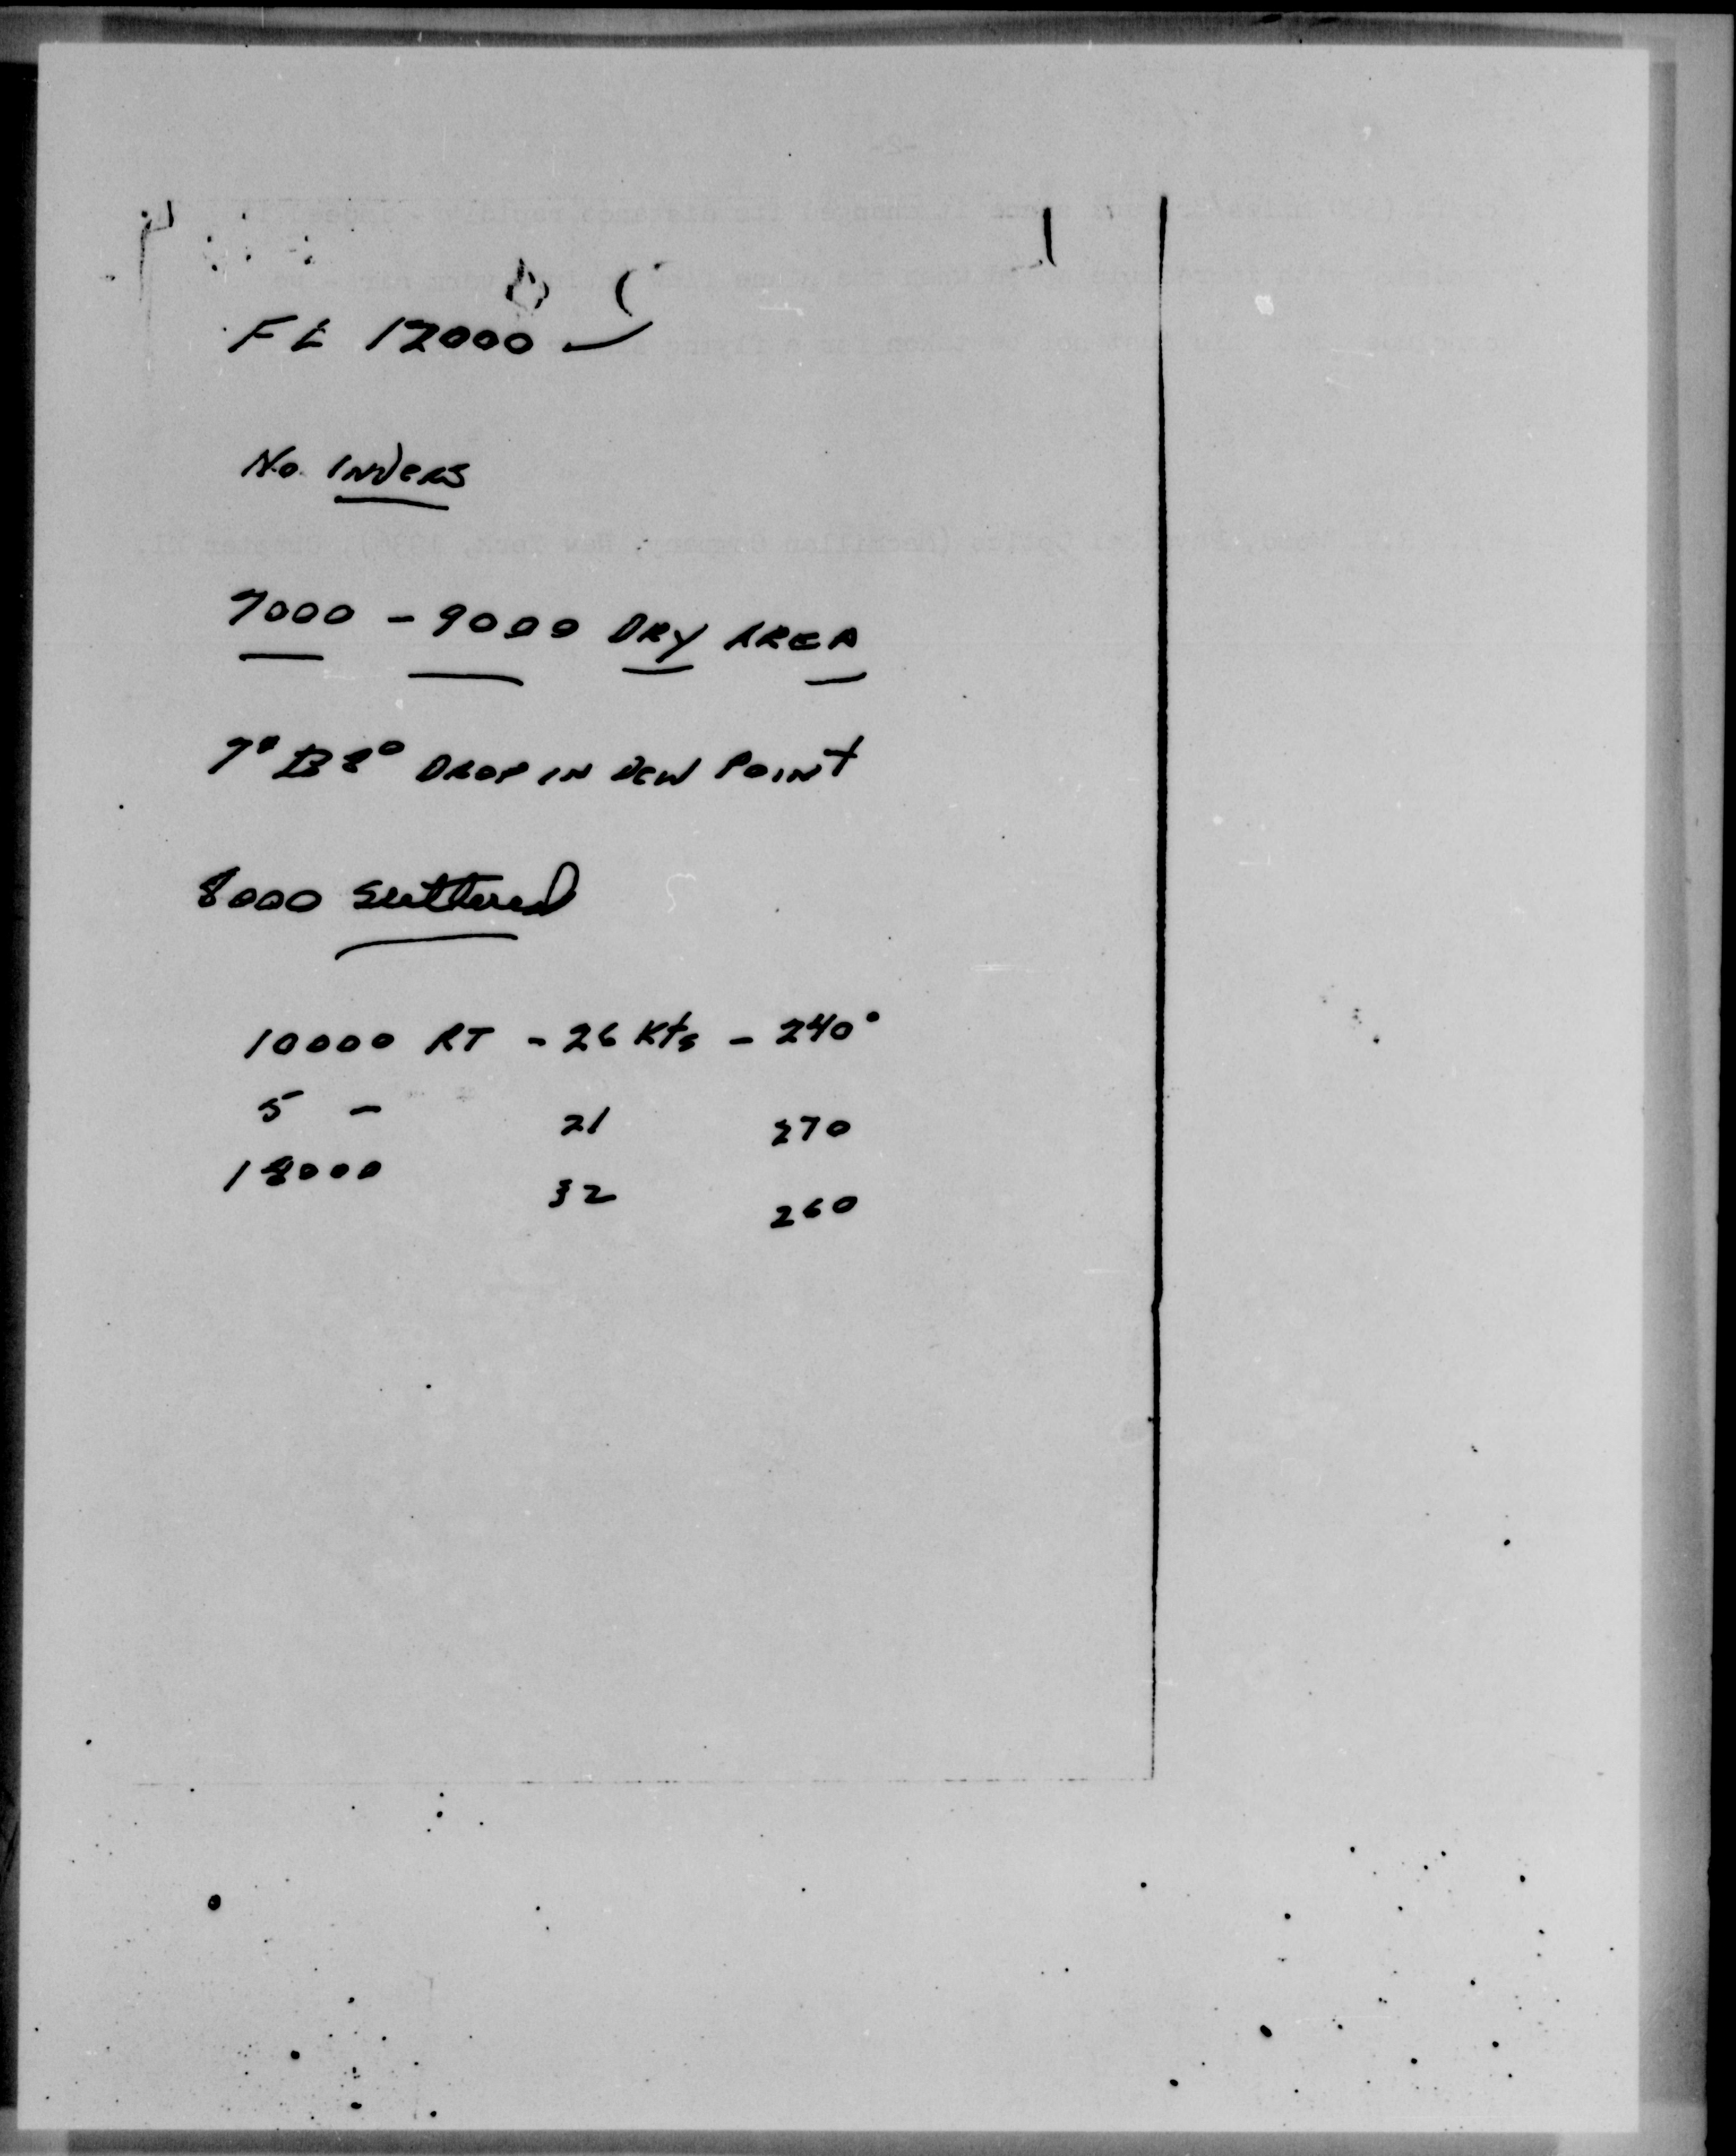 FL 12000
No Invers
7000 - 9000 DRY AREA
7° to 8° DROP IN DEW POINT
8000 scattered
10000 RT - 26 Kts - 240°
5 - 21 270
18000 32 260